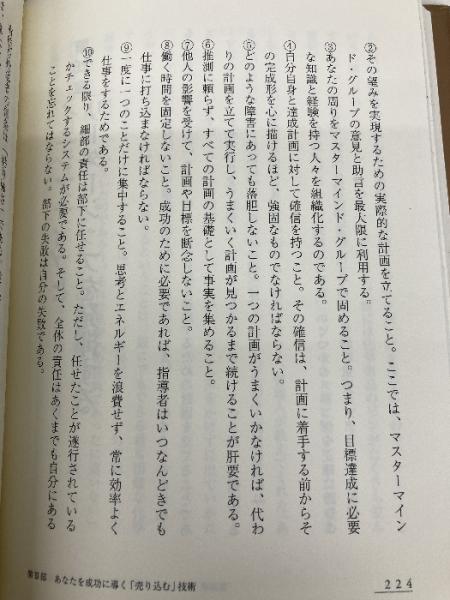 ②その望みを実現するための実際的な計画を立てること。ここでは、マスターマイン
ド・グループの意見と助言を最大限に利用する。
③あなたの周りをマスターマインド・グループで固めること。つまり、目標達成に必要
な知識と経験を持つ人々を組織化するのである。
④自分自身と達成計画に対して確信を持つこと。その確信は、計画に着手する前からそ
の完成形を心に描けるほど、強固なものでなければならない。
⑤どのような障害にあっても落胆しないこと。一つの計画がうまくいかなければ、代わ
りの計画を立てて実行し、うまくいく計画が見つかるまで続けることが肝要である。
⑥推測に頼らず、すべての計画の基礎として事実を集めること。
⑦他人の影響を受けて、計画や目標を断念しないこと。
⑧働く時間を固定しないこと。成功のために必要であれば、指導者はいつなんどきでも
仕事に打ち込まなければならない。
⑨一度に一つのことだけに集中すること。思考とエネルギーを浪費せず、常に効率よく
仕事をするためである。
⑩できる限り、細部の責任は部下に任せること。ただし、任せたことが遂行されている
かチェックするシステムが必要である。そして、全体の責任はあくまでも自分にある
ことを忘れてはならない。部下の失敗は自分の失敗である。
第Ⅱ部 あなたを成功に導く「売り込む」技術
224